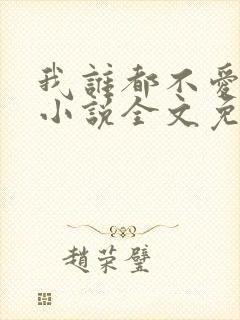 我誰都不愛
小說全文免
趙榮璧